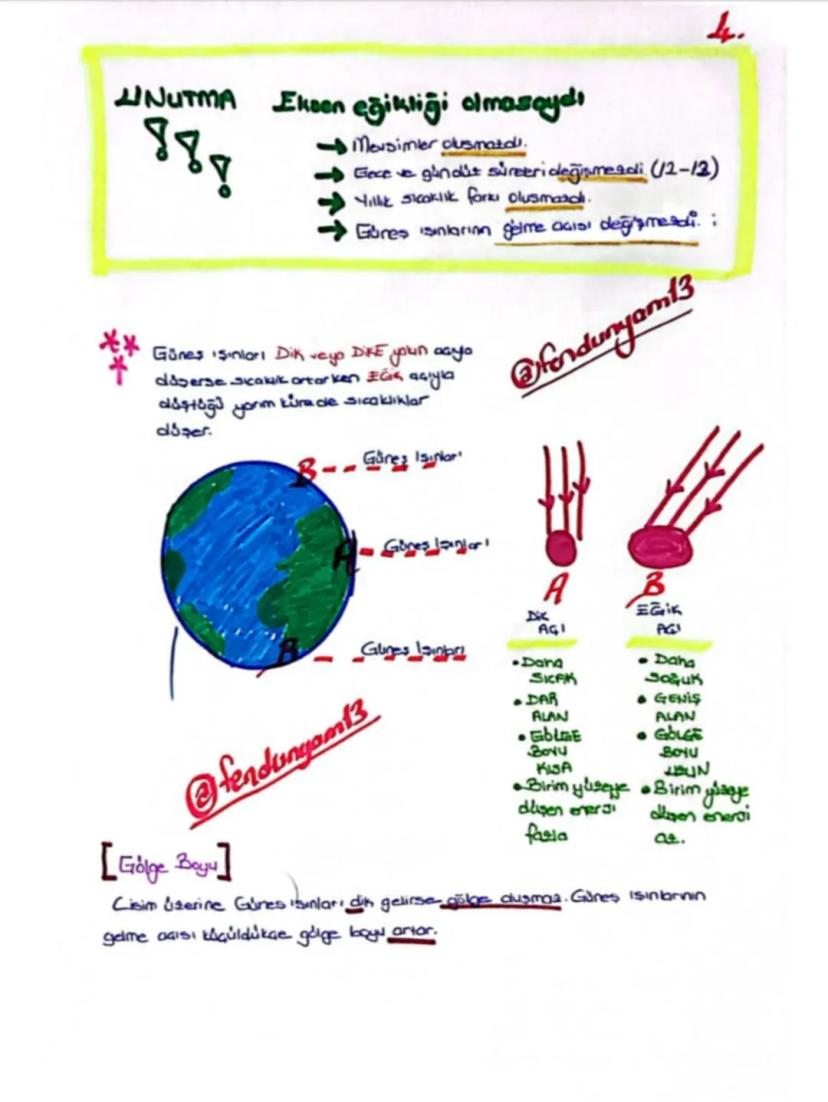 4.
UNUTMA Eksen eğikliği olmasaydı
!!!
→ Mevsimler oluşmazdı.
→ Gece ve gündüz süreleri değişmezdi (12-12)
→ Yıllık sıcaklık farkı oluşmazdı.
→ Güneş ışınlarının gelme açısı değişmezdi.
@fendunyam13
Güneş ışınları Dik veya DİKE yakın açıyla
düşerse sıcaklık artarken EĞİK açıyla
düştüğü yarım kürede sıcaklıklar
düşer.
B Güneş Işınları
A Güneş Işınları
B Güneş Işınları
A
Dik
AÇI
• Daha
SICAK
• DAR
ALAN
• GÖLGE
BOYU
KISA
• Birim yüzeye
düşen enerji
fazla
B
EĞİK
AÇI
• Daha
SOĞUK
• GENİŞ
ALAN
• GÖLGE
BOYU
UZUN
• Birim yüzeye
düşen enerji
az.
@fendunyam13
[Gölge Boyu]
Cisim üzerine Güneş ışınları dik gelirse gölge oluşmaz. Güneş ışınlarının
gelme açısı küçüldükçe gölge boyu artar.